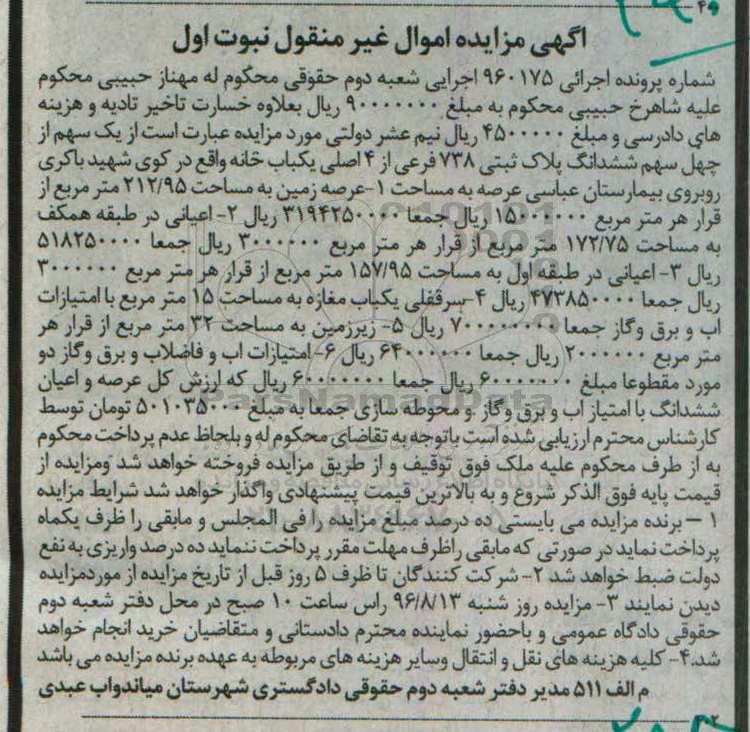 ۴۰
آگهی مزایده اموال غیر منقول نبوت اول
شماره پرونده اجرائی ۹۶۰۱۷۵ اجرایی شعبه دوم حقوقی محکوم له مهناز حبیبی محکوم
علیه شاهرخ حبیبی محکوم به مبلغ ۹۰۰۰۰۰۰۰ ریال بعلاوه خسارت تاخیر تادیه و هزینه
های دادرسی و مبلغ ۴۵۰۰۰۰۰ ریال نیم عشر دولتی مورد مزایده عبارت است از یک سهم از
چهل سهم ششدانگ پلاک ثبتی ۷۳۸ فرعی از ۴ اصلی یکباب خانه واقع در کوی شهید باکری
روبروی بیمارستان عباسی عرصه به مساحت ۱-عرصه زمین به مساحت ۲۱۲/۹۵ متر مربع از
قرار هر متر مربع ۱۵۰۰۰۰۰۰ ریال جمعا ۳۱۹۴۲۵۰۰۰۰ ریال ۲- اعیانی در طبقه همکف
به مساحت ۱۷۲/۷۵ متر مربع از قرار هر متر مربع ۳۰۰۰۰۰۰ ریال جمعا ۵۱۸۲۵۰۰۰۰
ریال ۳- اعیانی در طبقه اول به مساحت ۱۵۷/۹۵ متر مربع از قرار هر متر مربع ۳۰۰۰۰۰۰
ریال جمعا ۴۷۳۸۵۰۰۰۰ ریال ۴-سرقفلی یکباب مغازه به مساحت ۱۵ متر مربع با امتیازات
اب و برق وگاز جمعا ۷۰۰۰۰۰۰۰۰ ریال ۵- زیرزمین به مساحت ۳۲ متر مربع از قرار هر
متر مربع ۲۰۰۰۰۰۰ ریال جمعا ۶۴۰۰۰۰۰۰ ریال ۶- امتیازات اب و فاضلاب و برق وگاز دو
مورد مقطوعا مبلغ ۶۰۰۰۰۰۰۰ ریال جمعا ۶۰۰۰۰۰۰۰ ریال که ارزش کل عرصه و اعیان
ششدانگ با امتیاز اب و برق وگاز و محوطه سازی جمعا به مبلغ ۵۰۱۰۳۵۰۰۰ تومان توسط
کارشناس محترم ارزیابی شده است باتوجه به تقاضای محکوم له و بلحاظ عدم پرداخت محکوم
به از طرف محکوم علیه ملک فوق توقیف و از طریق مزایده فروخته خواهد شد ومزایده از
قیمت پایه فوق الذکر شروع و به بالاترین قیمت پیشنهادی واگذار خواهد شد شرایط مزایده
۱ – برنده مزایده می بایستی ده درصد مبلغ مزایده را فی المجلس و مابقی را ظرف یکماه
پرداخت نماید در صورتی که مابقی راظرف مهلت مقرر پرداخت ننماید ده درصد واریزی به نفع
دولت ضبط خواهد شد ۲- شرکت کنندگان تا ظرف ۵ روز قبل از تاریخ مزایده از موردمزایده
دیدن نمایند ۳- مزایده روز شنبه ۹۶/۸/۱۳ راس ساعت ۱۰ صبح در محل دفتر شعبه دوم
حقوقی دادگاه عمومی و باحضور نماینده محترم دادستانی و متقاضیان خرید انجام خواهد
شد.۴- کلیه هزینه های نقل و انتقال وسایر هزینه های مربوطه به عهده برنده مزایده می باشد
م الف ۵۱۱ مدیر دفتر شعبه دوم حقوقی دادگستری شهرستان میاندواب عبدی
ParsNamadData